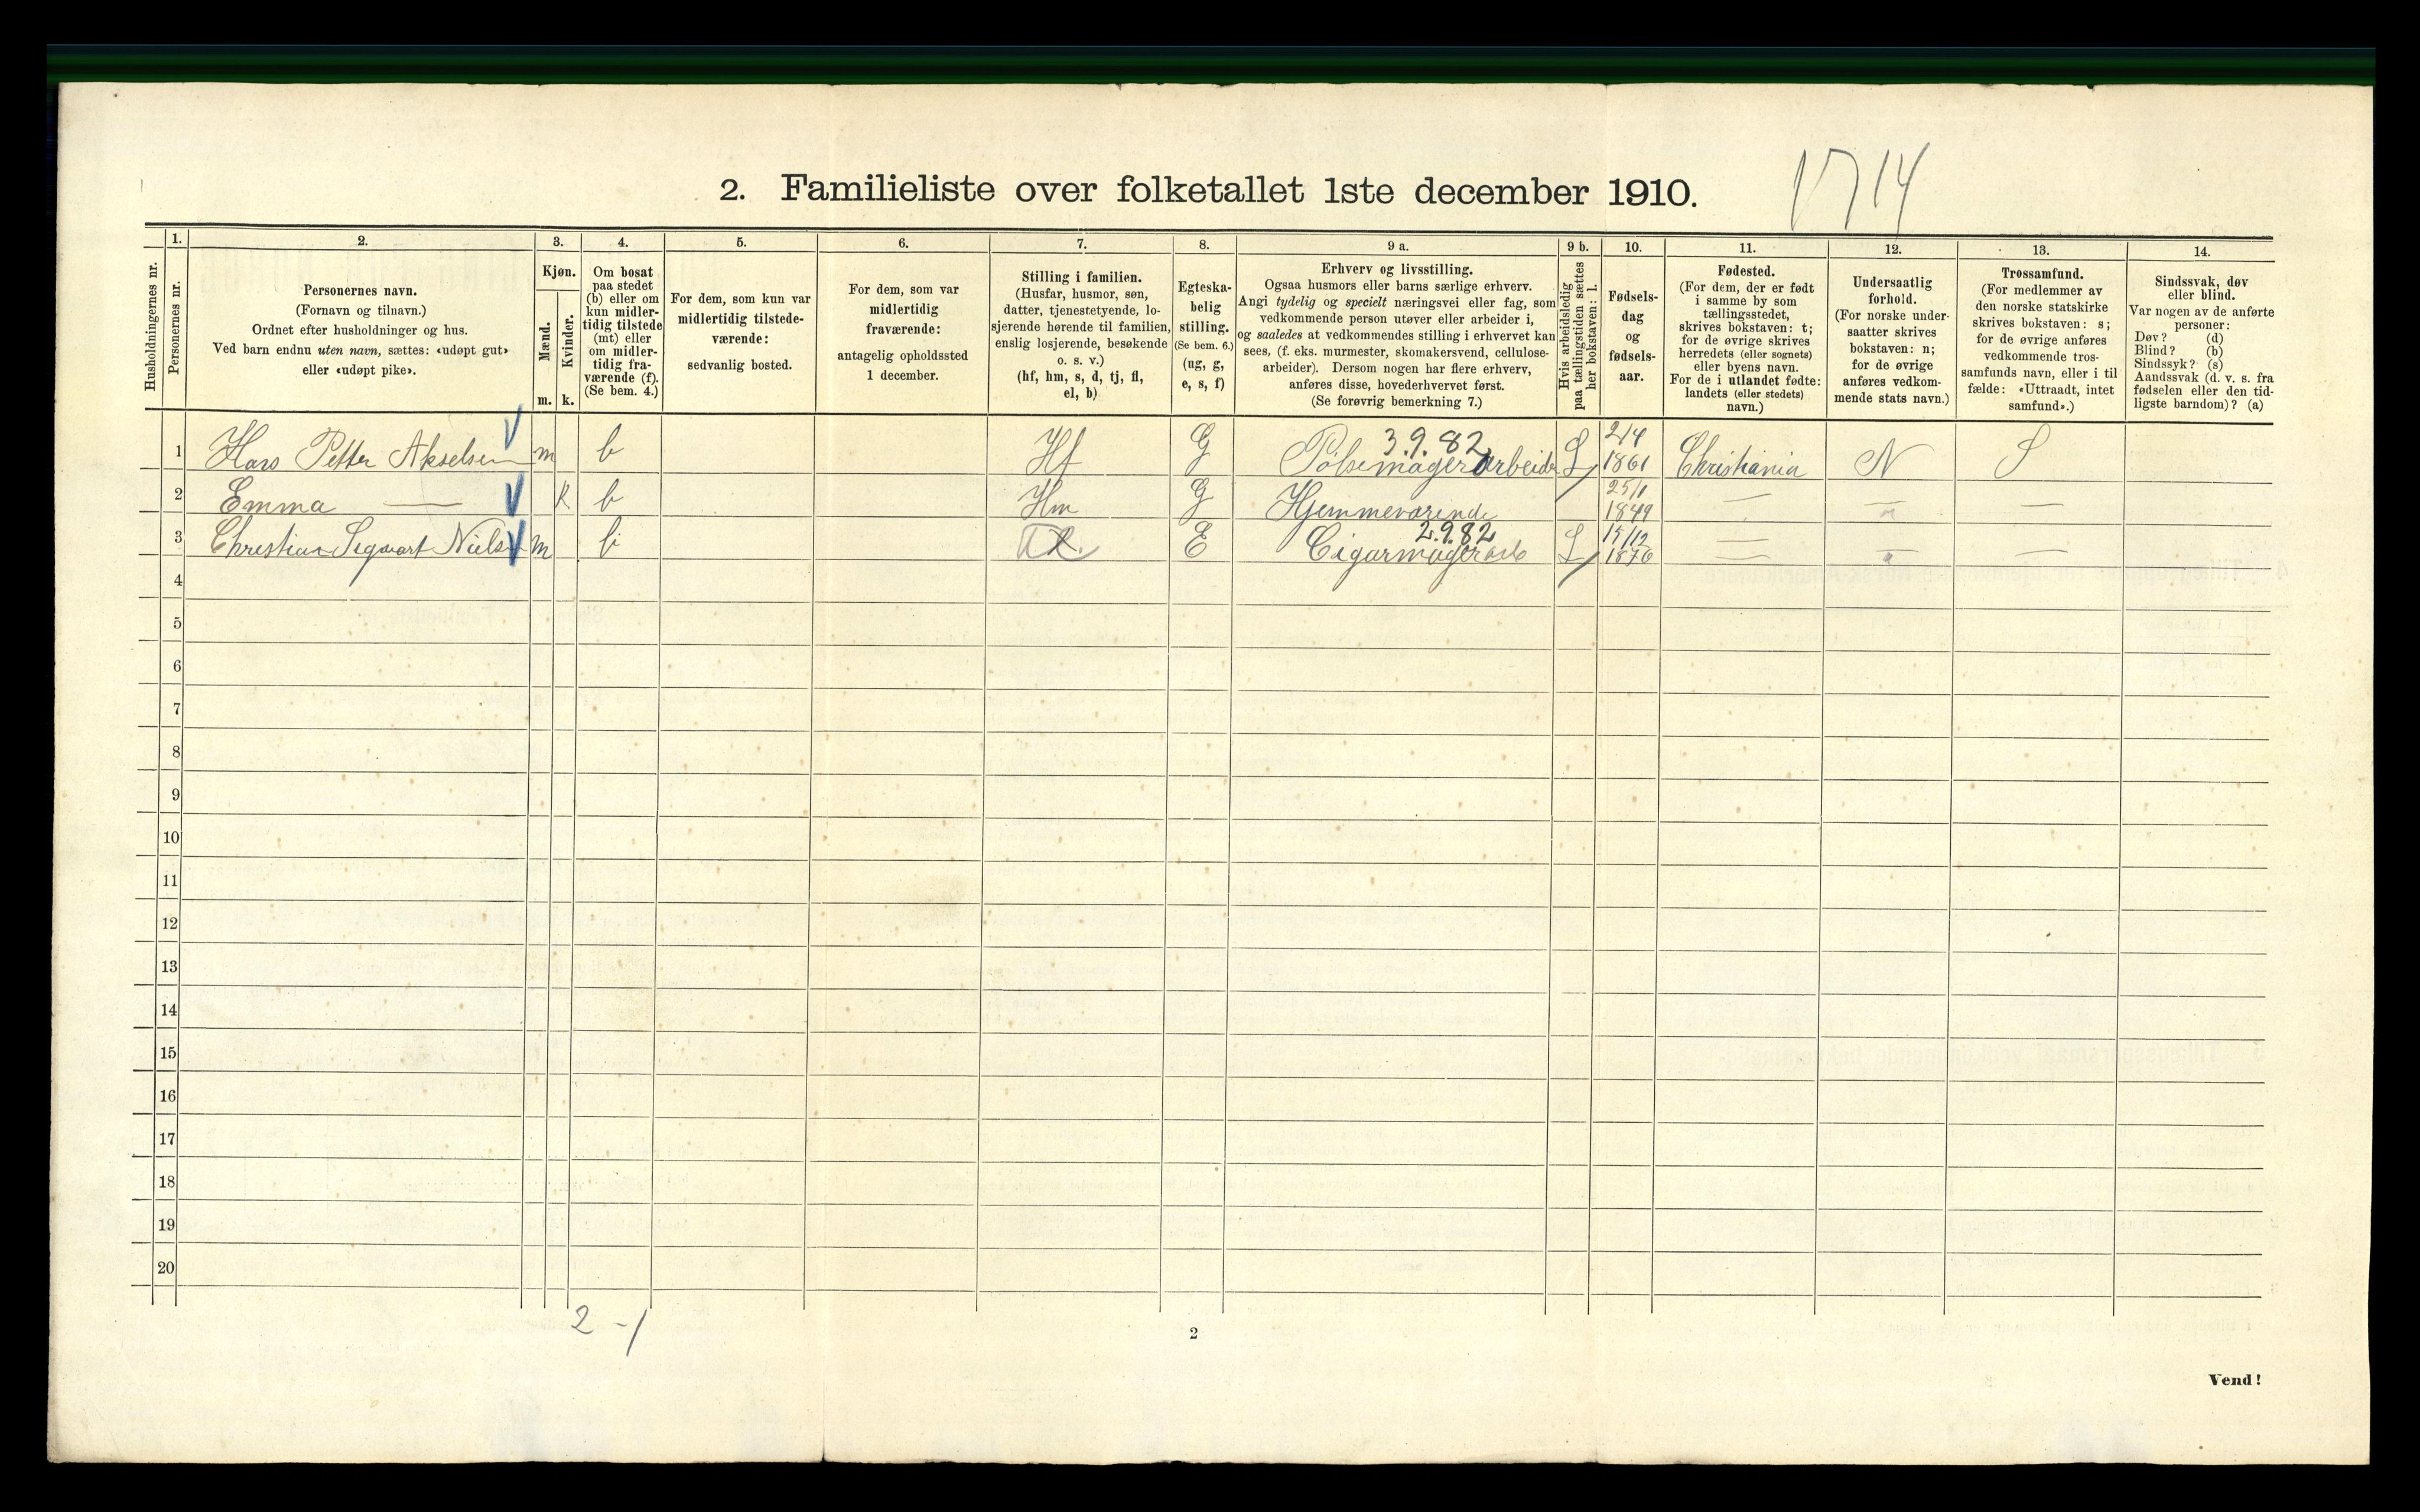 1714
2. Familieliste over folketallet 1ste december 1910.
Husholdningernes nr.
1. Personernes nr.
2. Personernes navn.
(Fornavn og tilnavn.)
Ordnet efter husholdninger og hus.
Ved barn endnu uten navn, sættes: «udøpt gut»
eller «udøpt pike».
3. Kjøn.
Mænd. m.
Kvinder. k.
4. Om bosat
paa stedet
(b) eller om
kun midler-
tidig tilstede
(mt) eller
om midler-
tidig fra-
værende (f).
(Se bem. 4.)
5. For dem, som kun var
midlertidig tilstede-
værende:
sedvanlig bosted.
6. For dem, som var
midlertidig
fraværende:
antagelig opholdssted
1 december.
7. Stilling i familien.
(Husfar, husmor, søn,
datter, tjenestetyende, lo-
sjerende hørende til familien,
enslig losjerende, besøkende
o. s. v.)
(hf, hm, s, d, tj, fl,
el, b)
8. Egteska-
belig
stilling.
(Se bem. 6.)
(ug, g,
e, s, f)
9 a. Erhverv og livsstilling.
Ogsaa husmors eller barns særlige erhverv.
Angi tydelig og specielt næringsvei eller fag, som
vedkommende person utøver eller arbeider i,
og saaledes at vedkommendes stilling i erhvervet kan
sees, (f. eks. murmester, skomakersvend, cellulose-
arbeider). Dersom nogen har flere erhverv,
anføres disse, hovederhvervet først.
(Se forøvrig bemerkning 7.)
9 b. Hvis arbeidsledig
paa tællingstiden sættes
her bokstaven: l.
10. Fødsels-
dag
og
fødsels-
aar.
11. Fødested.
(For dem, der er født
i samme by som
tællingsstedet,
skrives bokstaven: t;
for de øvrige skrives
herredets (eller sognets)
eller byens navn.
For de i utlandet fødte:
landets (eller stedets)
navn.)
12. Undersaatlig
forhold.
(For norske under-
saatter skrives
bokstaven: n;
for de øvrige
anføres vedkom-
mende stats navn.)
13. Trossamfund.
(For medlemmer av
den norske statskirke
skrives bokstaven: s;
for de øvrige anføres
vedkommende tros-
samfunds navn, eller i til
fælde: «Uttraadt, intet
samfund».)
14. Sindssvak, døv
eller blind.
Var nogen av de anførte
personer:
Døv? (d)
Blind? (b)
Sindssyk? (s)
Aandssvak (d. v. s. fra
fødselen eller den tid-
ligste barndom)? (a)
1 Hans Petter Akselsen m b Hf G 3.9.82 Pølsemagerarbeide L 2/4 1861 Christiania N S
2 Emma — k b Hm G Hjemmeværende 25/1 1849 — " —
3 Christian Segwart Niels m b E 2.9.82 Cigarmagerarb L 15/12 1876 — " —
4
5
6
7
8
9
10
11
12
13
14
15
16
17
18
19
20
2 - 1
2
Vend!